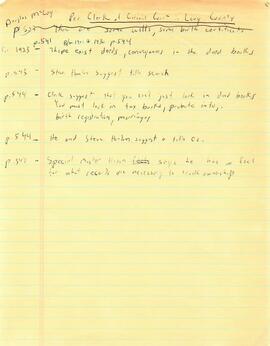 Douglas McCoy Per Clerk of Circuit Court - Levy County
p 537 there are some wills, some birth certificates
p. 541 p. 544
1925 - There exist deeds, conveyances in the deed books
p. 543 - Steve Hanlon suggest title search
p. 544 - Clerk suggest that you can't just look in deed books
You must look in tax books, probate
birth registration, marriages
p. 544 - He and Steve Hanlon suggest a title Co.
p. 547 - Special Master says he has a feel
for what records are necessary to